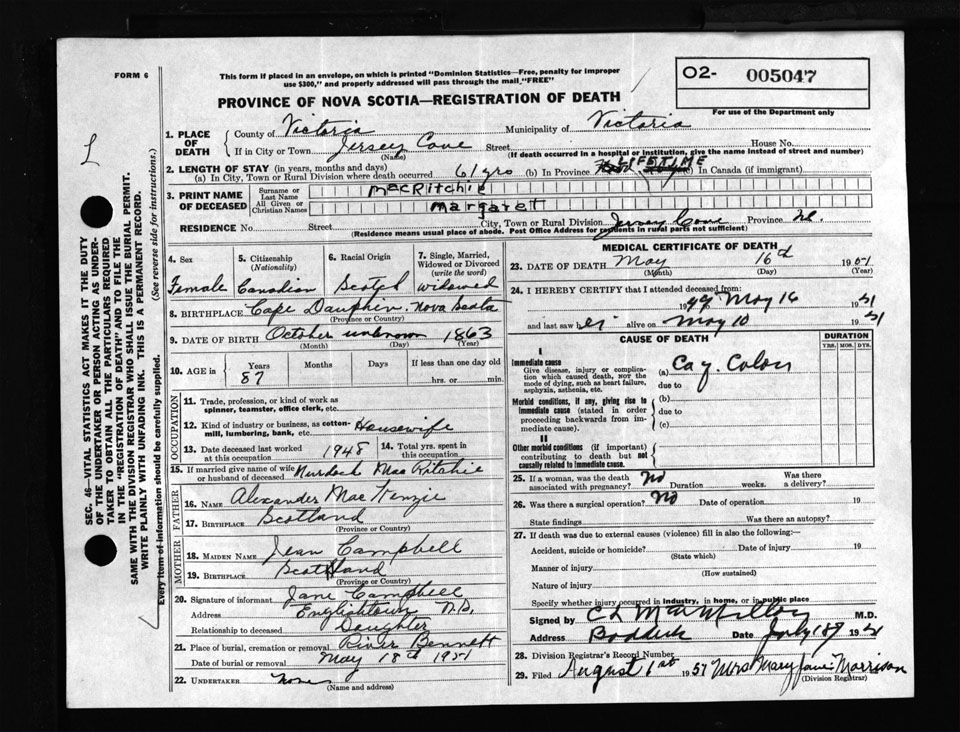 FORM 6
This form if placed in an envelope, on which is printed "Dominion Statistics—Free, penalty for improper
use $300," and properly addressed will pass through the mail "FREE"
O2- 005047
For use of the Department only
PROVINCE OF NOVA SCOTIA—REGISTRATION OF DEATH
L
SEC. 46—VITAL STATISTICS ACT MAKES IT THE DUTY
OF THE UNDERTAKER OR PERSON ACTING AS UNDER-
TAKER TO OBTAIN ALL THE PARTICULARS REQUIRED
IN THE "REGISTRATION OF DEATH" AND TO FILE THE
SAME WITH THE DIVISION REGISTRAR WHO SHALL ISSUE THE BURIAL PERMIT.
WRITE PLAINLY WITH UNFADING INK. THIS IS A PERMANENT RECORD.
Every item of information should be carefully supplied. (See reverse side for instructions.)
1. PLACE OF DEATH
County of Victoria Municipality of Victoria
If in City or Town Jersey Cove Street House No.
(Name) (If death occurred in a hospital or institution, give the name instead of street and number)
2. LENGTH OF STAY (in years, months and days)
(a) In City, Town or Rural Division where death occurred 61 yrs (b) In Province LIFETIME (c) In Canada (if immigrant)
3. PRINT NAME OF DECEASED
Surname or Last Name MacRitchie
All Given or Christian Names Margaret
RESIDENCE No. Street City, Town or Rural Division Jersey Cove Province
(Residence means usual place of abode. Post Office Address for residents in rural parts not sufficient)
4. Sex Female
5. Citizenship (Nationality) Canadian
6. Racial Origin Scotch
7. Single, Married, Widowed or Divorced (write the word) widowed
8. BIRTHPLACE Cape Dauphin. Nova Scotia
(Province or Country)
9. DATE OF BIRTH October unknown 1863
(Month) (Day) (Year)
10. AGE in Years 87 Months Days If less than one day old
hrs. or min.
OCCUPATION
11. Trade, profession, or kind of work as
spinner, teamster, office clerk, etc.
12. Kind of industry or business, as cotton-
mill, lumbering, bank, etc. Housewife
13. Date deceased last worked at this occupation 1948 14. Total yrs. spent in this occupation
15. If married give name of wife or husband of deceased Murdoch MacRitchie
FATHER
16. NAME Alexander MacKenzie
17. BIRTHPLACE Scotland
(Province or Country)
MOTHER
18. MAIDEN NAME Jean Campbell
19. BIRTHPLACE Scotland
(Province or Country)
20. Signature of informant Jane Campbell
Address Englishtown N.S.
Relationship to deceased Daughter
21. Place of burial, cremation or removal River Bennett
Date of burial or removal May 18th 1951
22. UNDERTAKER None
(Name and address)
MEDICAL CERTIFICATE OF DEATH
23. DATE OF DEATH May 16th 1951
(Month) (Day) (Year)
24. I HEREBY CERTIFY that I attended deceased from:
May 16 1951
and last saw her alive on May 10 1951
CAUSE OF DEATH
DURATION
YRS. MOS. DYS.
I
Immediate cause
Give disease, injury or complica-
tion which caused death, NOT the
mode of dying, such as heart failure,
asphyxia, asthenia, etc.
(a) Ca of Colon
due to
Morbid conditions, if any, giving rise to
immediate cause (stated in order
proceeding backwards from im-
mediate cause).
(b)
due to
(c)
II
Other morbid conditions (if important)
contributing to death but not
causally related to immediate cause.
25. If a woman, was the death associated with pregnancy? No Duration weeks. Was there a delivery?
26. Was there a surgical operation? No Date of operation 19
State findings Was there an autopsy?
27. If death was due to external causes (violence) fill in also the following:—
Accident, suicide or homicide? Date of injury 19
(State which)
Manner of injury
(How sustained)
Nature of injury
Specify whether injury occurred in industry, in home, or in public place
Signed by C L MacMillan M.D.
Address Baddeck Date July 18 1951
28. Division Registrar's Record Number
29. Filed August 1st 1951 Mrs Mary Jane Morrison
(Division Registrar)